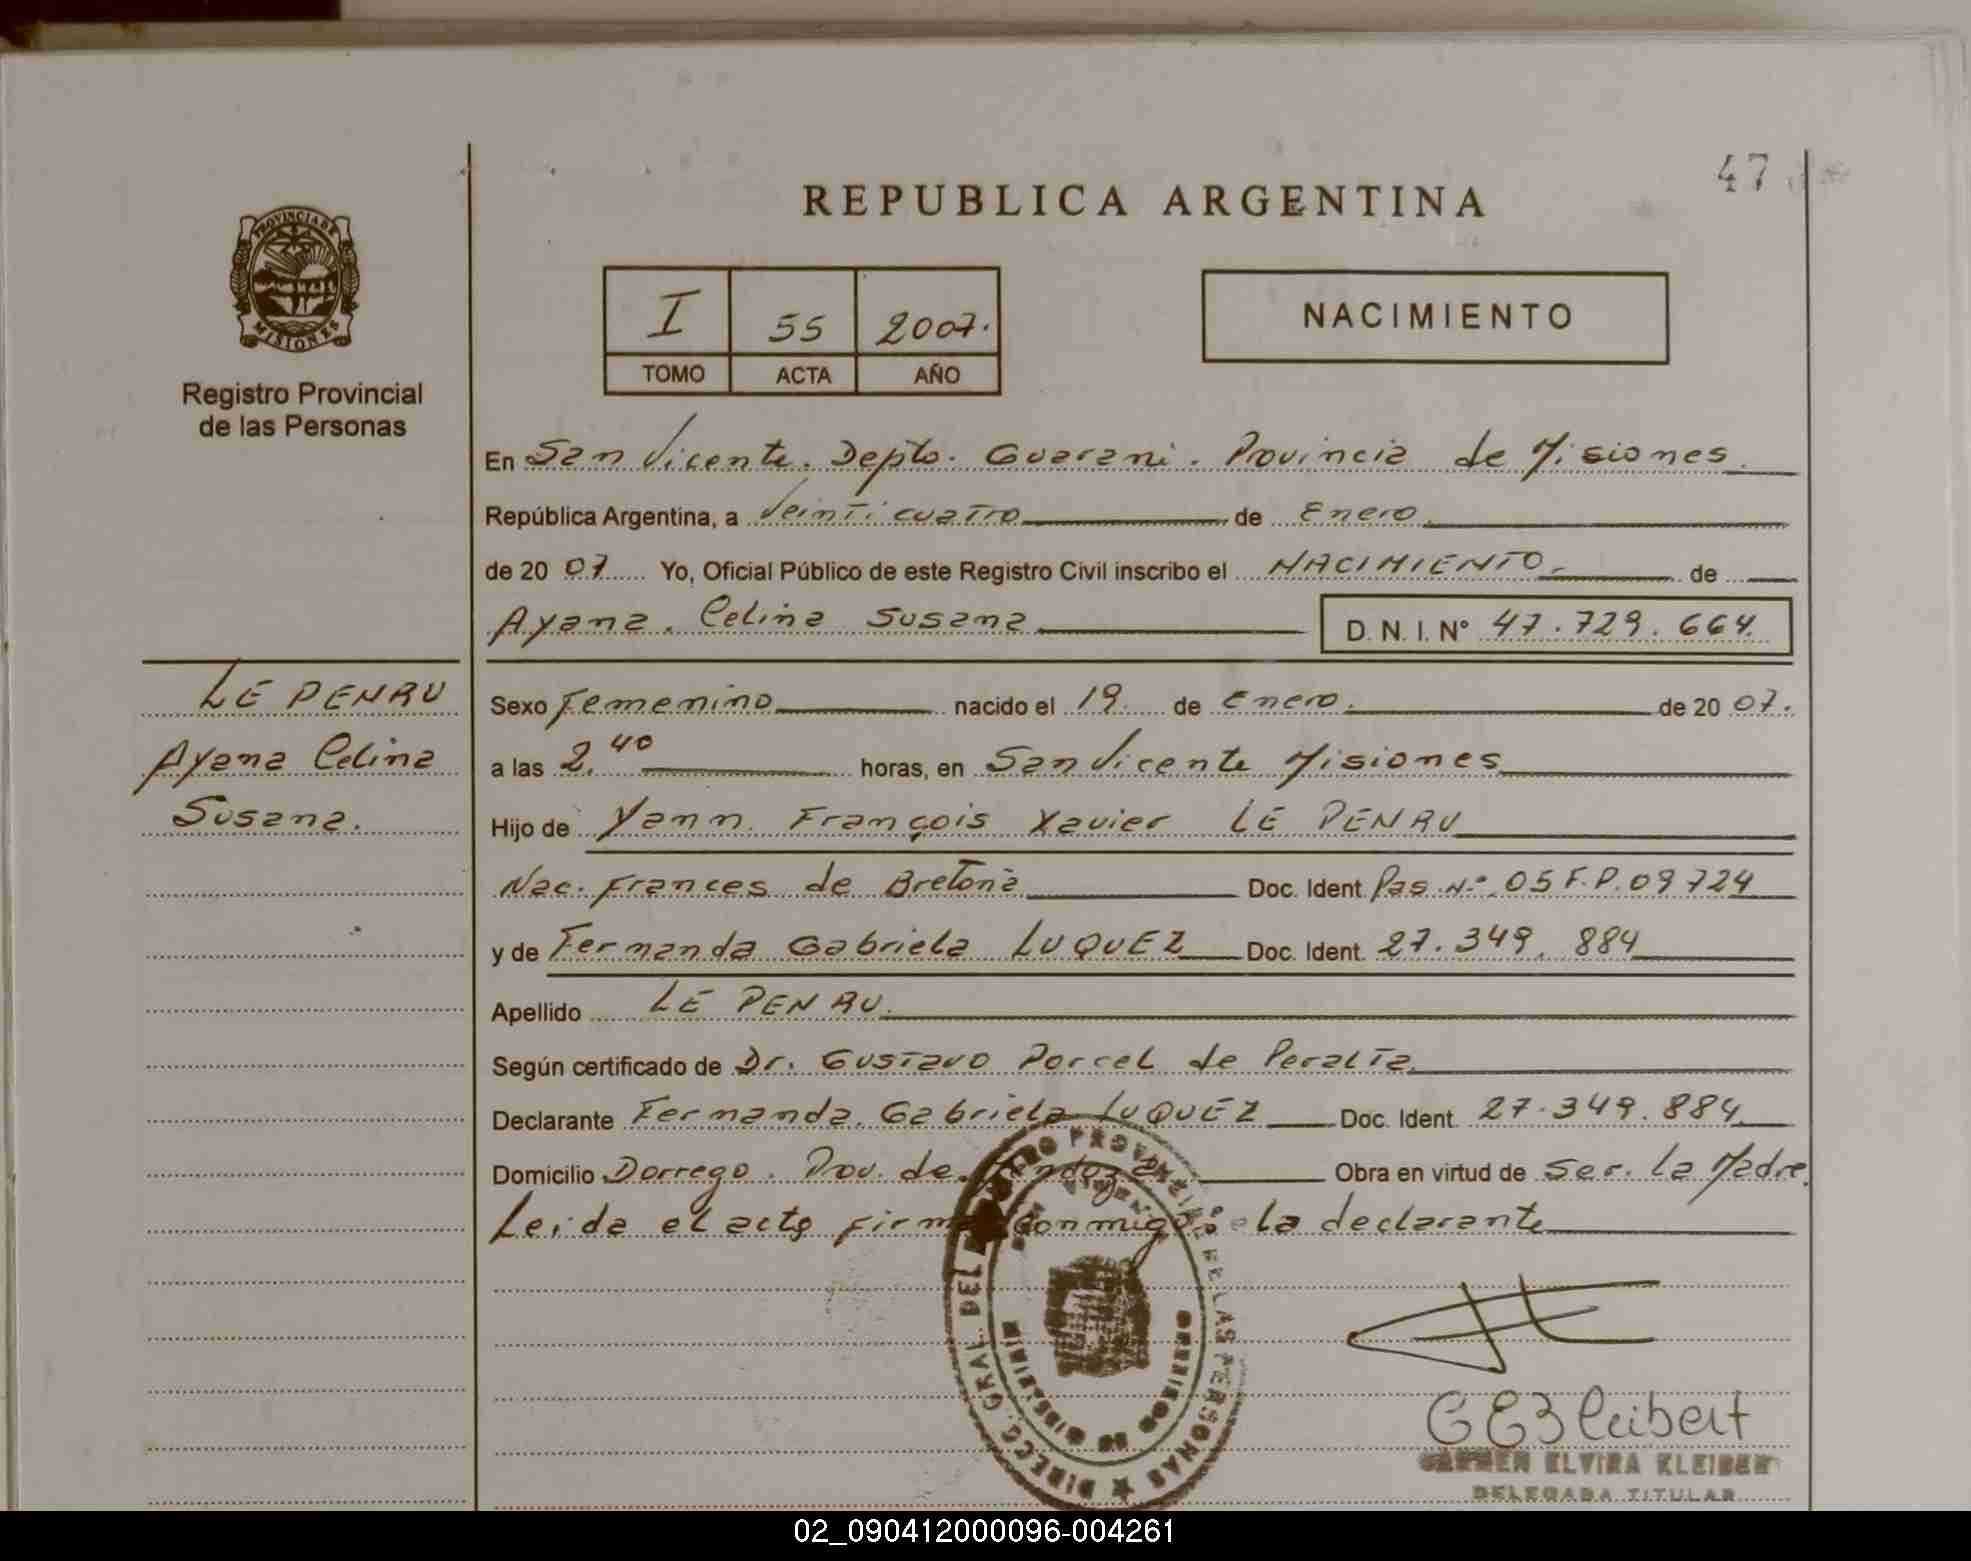 47
REPUBLICA ARGENTINA
PROVINCIA DE
MISIONES
Registro Provincial
de las Personas
I 55 2007.
TOMO ACTA AÑO
NACIMIENTO
En San Vicente. Depto. Guarani. Provincia de Misiones
República Argentina, a Veinticuatro de Enero
de 20 07 Yo, Oficial Público de este Registro Civil inscribo el NACIMIENTO. de
Ayana. Celina Susana D. N. I. N° 47.729.664.
LE PENRU
Ayana Celina
Susana.
Sexo Femenino nacido el 19 de Enero. de 20 07.
a las 2.40 horas, en San Vicente Misiones
Hijo de Yann François Xavier LE PENRU
Nac. Frances de Bretona Doc. Ident. Pas. N.° 05 F.P. 09724
y de Fernanda Gabriela LUQUEZ Doc. Ident. 27.349.884
Apellido LE PENRU.
Según certificado de Dr. Gustavo Porcel de Peralta
Declarante Fernanda. Gabriela LUQUEZ Doc. Ident. 27.349.884
Domicilio Dorrego. Prov. de Mendoza Obra en virtud de Ser. la Madre.
Leida el acta firma conmigo la declarante
DIRECC. GRAL. DEL REGISTRO PROVINCIAL DE LAS PERSONAS
SAN VICENTE
MISIONES
CARMEN ELVIRA KLEIBER
DELEGADA TITULAR
02_090412000096-004261